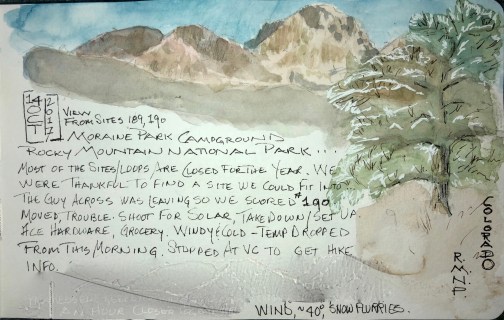 14 OCT 2017
VIEW
FROM SITES 189, 190
MORAINE PARK CAMPGROUND
ROCKY MOUNTAIN NATIONAL PARK...
MOST OF THE SITES/LOOPS ARE CLOSED FOR THE YEAR. WE
WERE THANKFUL TO FIND A SITE WE COULD FIT INTO.
THE GUY ACROSS WAS LEAVING SO WE SCORED #190
MOVED, TROUBLE-SHOOT FOR SOLAR, TAKE DOWN/SET UP,
ACE HARDWARE, GROCERY. WINDY & COLD - TEMP DROPPED
FROM THIS MORNING. STOPPED AT VC TO GET HIKE
INFO.
WIND, ~40°, SNOW FLURRIES.
COLORADO
R.M.N.P.